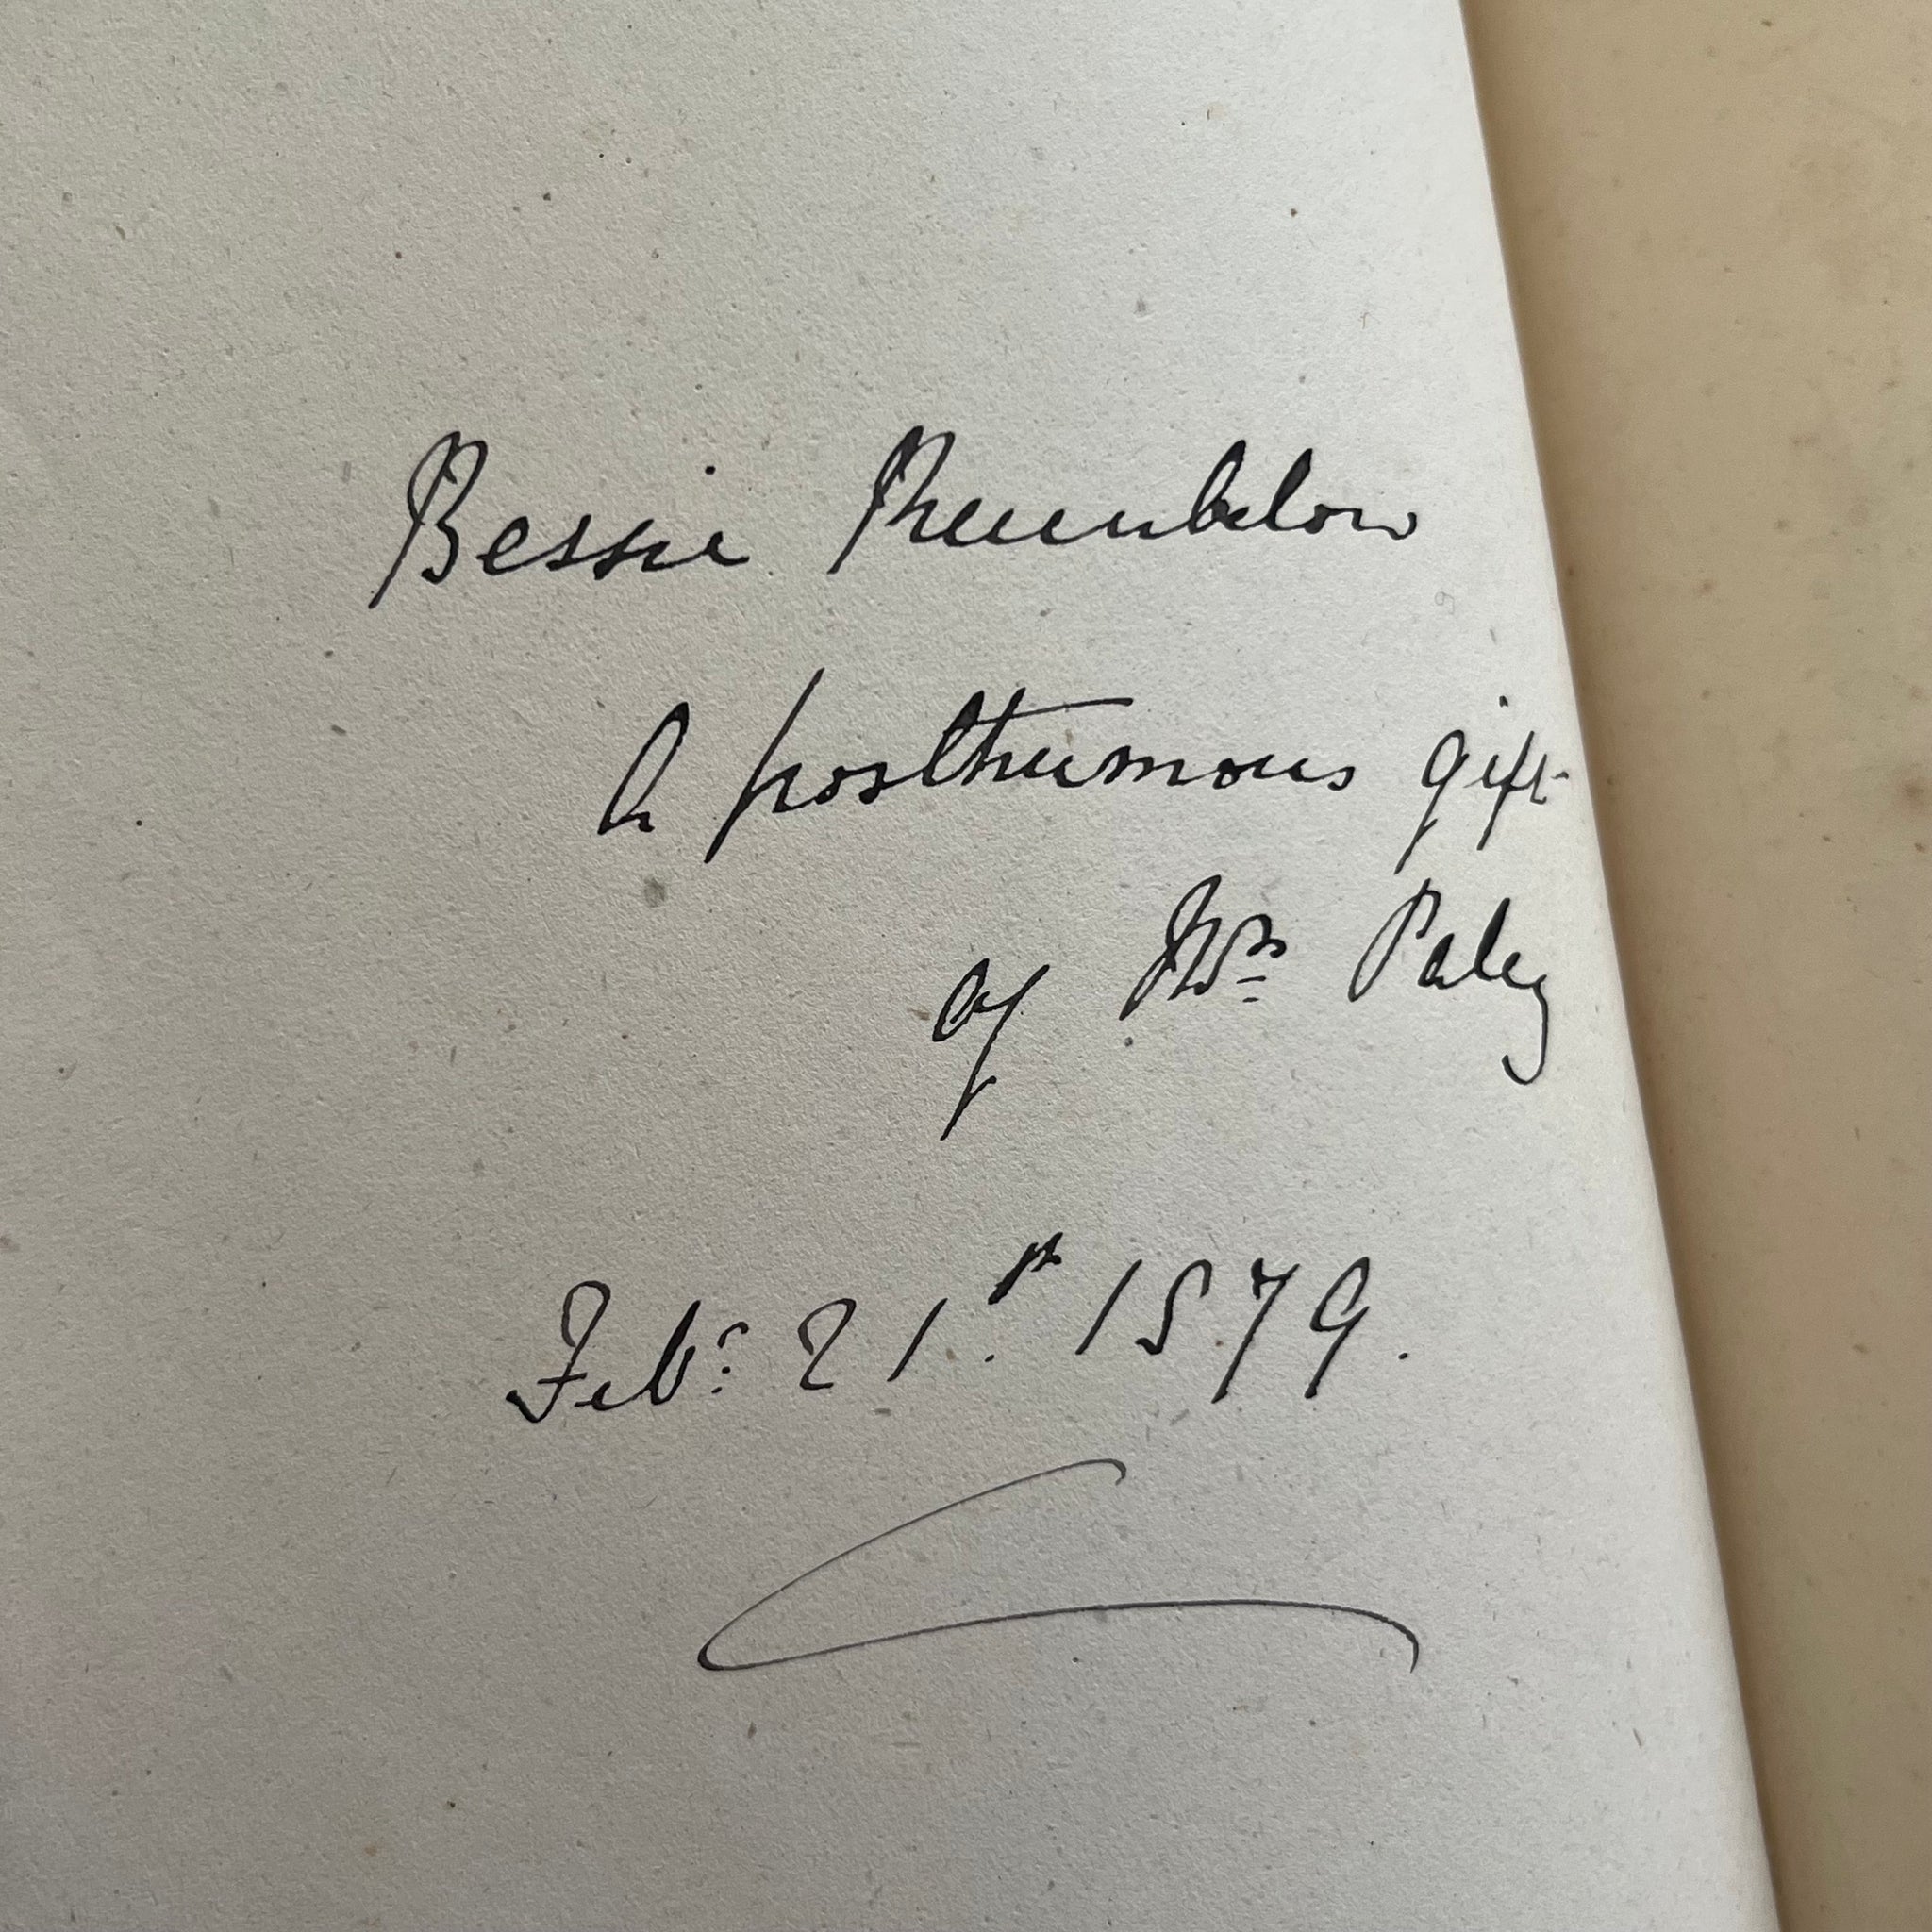 Bessie Rumbelow
A posthumous gift
of Mrs Paley
Feby 21st 1879.